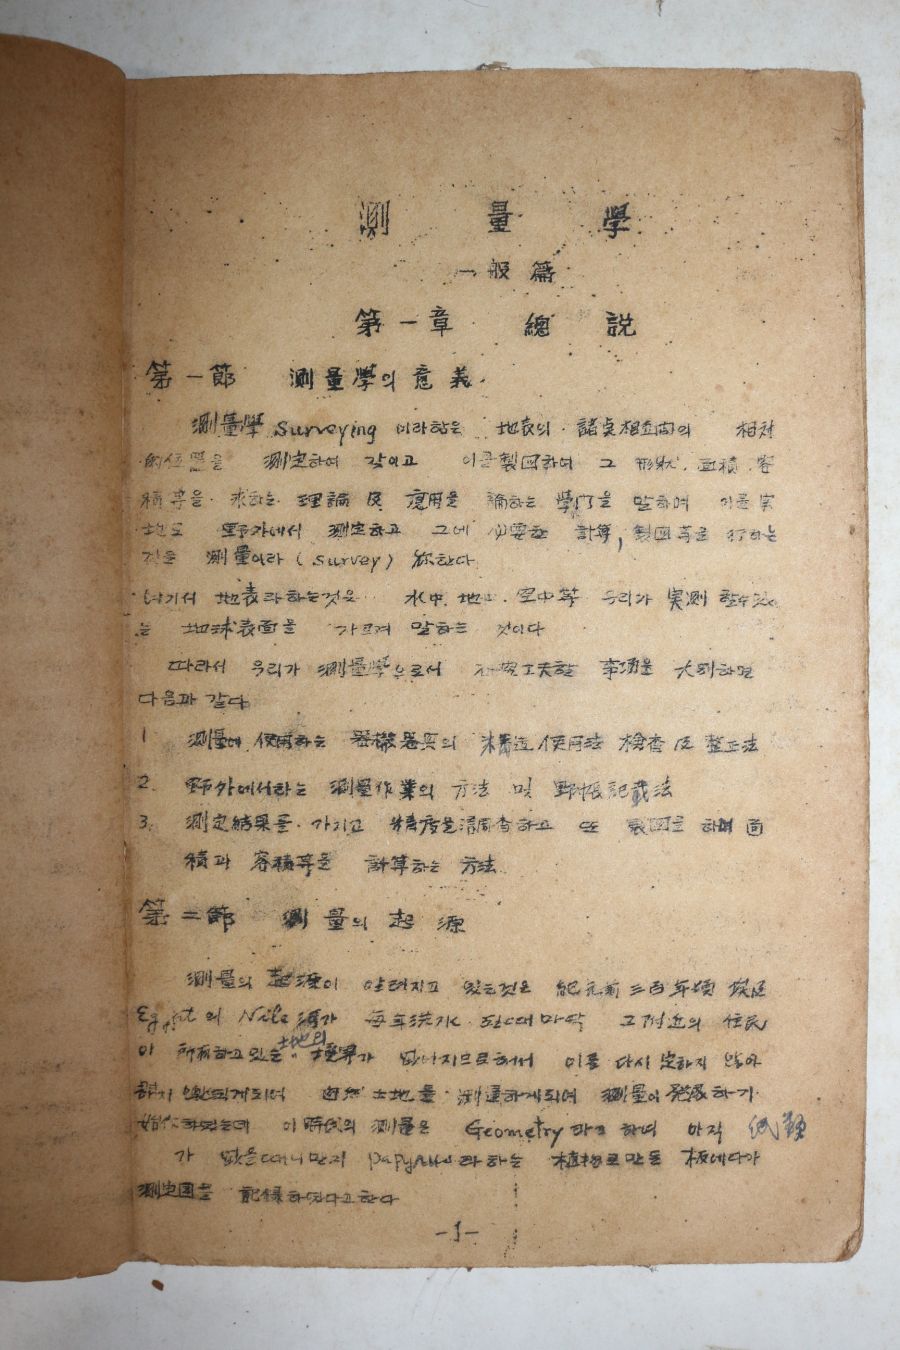 測量學
一般篇
第一章 總說
第一節 測量學의 意義
測量學 Surveying 이라함은 地表의 諸点相互間의 相対
的位置を 測定하여 각이고 이를製図하여 그 形狀, 面積, 容
積等을 求하는 理論 及 應用을 論하는 學门을 말하며 이를 実
地로 野外에서 測定하고 그에 必要한 計算, 製図等을 行하는
것을 測量이라 (survey) 称한다
여기서 地表라하는것은 水中, 地上, 空中等 우리가 実測 할수있
는 地球表面을 가르켜 말하는 것이다
따라서 우리가 測量學으로서 工夫할 事項을 大別하면
다음과 같다
1 測量에 使用하는 器械器具의 構造 使用法 檢査 及 整正法
2. 野外에서하는 測量作業의 方法 및 野帳記載法
3. 測定結果를 가지고 精度을 調査하고 또 製図을 하며 面
積과 容積等을 計算하는 方法
第二節 測量의 起源
測量의 起源이 알려지고 있는것은 紀元前 三百年頃 埃及
Egypt의 Nile 河가 每年洪水 될때마닥 그附近의 住民
이 所有하고있는 土地의 境界가 없어지므로해서 이를 다시 定하지 않아
하게되여 自然 土地를 測量하게되여 測量이 発展하기
始作하였는데 이 時代의 測量은 Geometry 라고 하며 아직 紙類
가 없을때니만치 papyrus라하는 植物로만든 板에다가
測定図을 記録하였다고한다
-1-